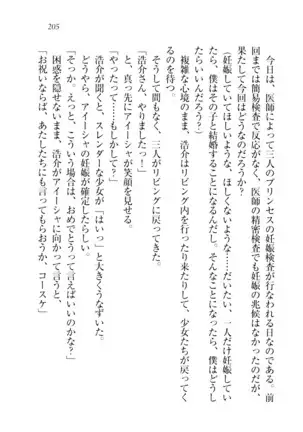 205
　今日は、医師によって三人のプリンセスの妊娠検査が行なわれる日なのである。前
回までは簡易検査で反応がなく、医師の精密検査でも妊娠の兆候はなかったのだが、
果たして今回はどうなのだろうか？
（妊娠して欲しいような、ほしくないような……だいたい、一人だけ妊娠してい
たら、僕はその子と結婚することになるんだし。そんなことになったら、僕はどうし
ていたらいいんだろう？）
　複雑な心境のまま、浩介はリビング内を行ったり来たりして、少女たちが戻ってく
るのを待った。
　そうして間もなく、三人がリビングに戻ってきた。
「浩介さん、やりましたっ！」
と、真っ先にアイーシャが笑顔を見せる。
「やったって……もしかして？」
　浩介が聞くと、スレンダーな少女が「はいっ」と大きくうなずいた。
　どうやら、アイーシャの妊娠が確定したらしい。
「そっか。えっと、こういう場合は、おめでとうって言えばいいのかな？」
　困惑を隠せないまま、浩介がアイーシャに向かって言うと、
「お祝いならば、あたしたちにも言ってもらおうか、コースケ」